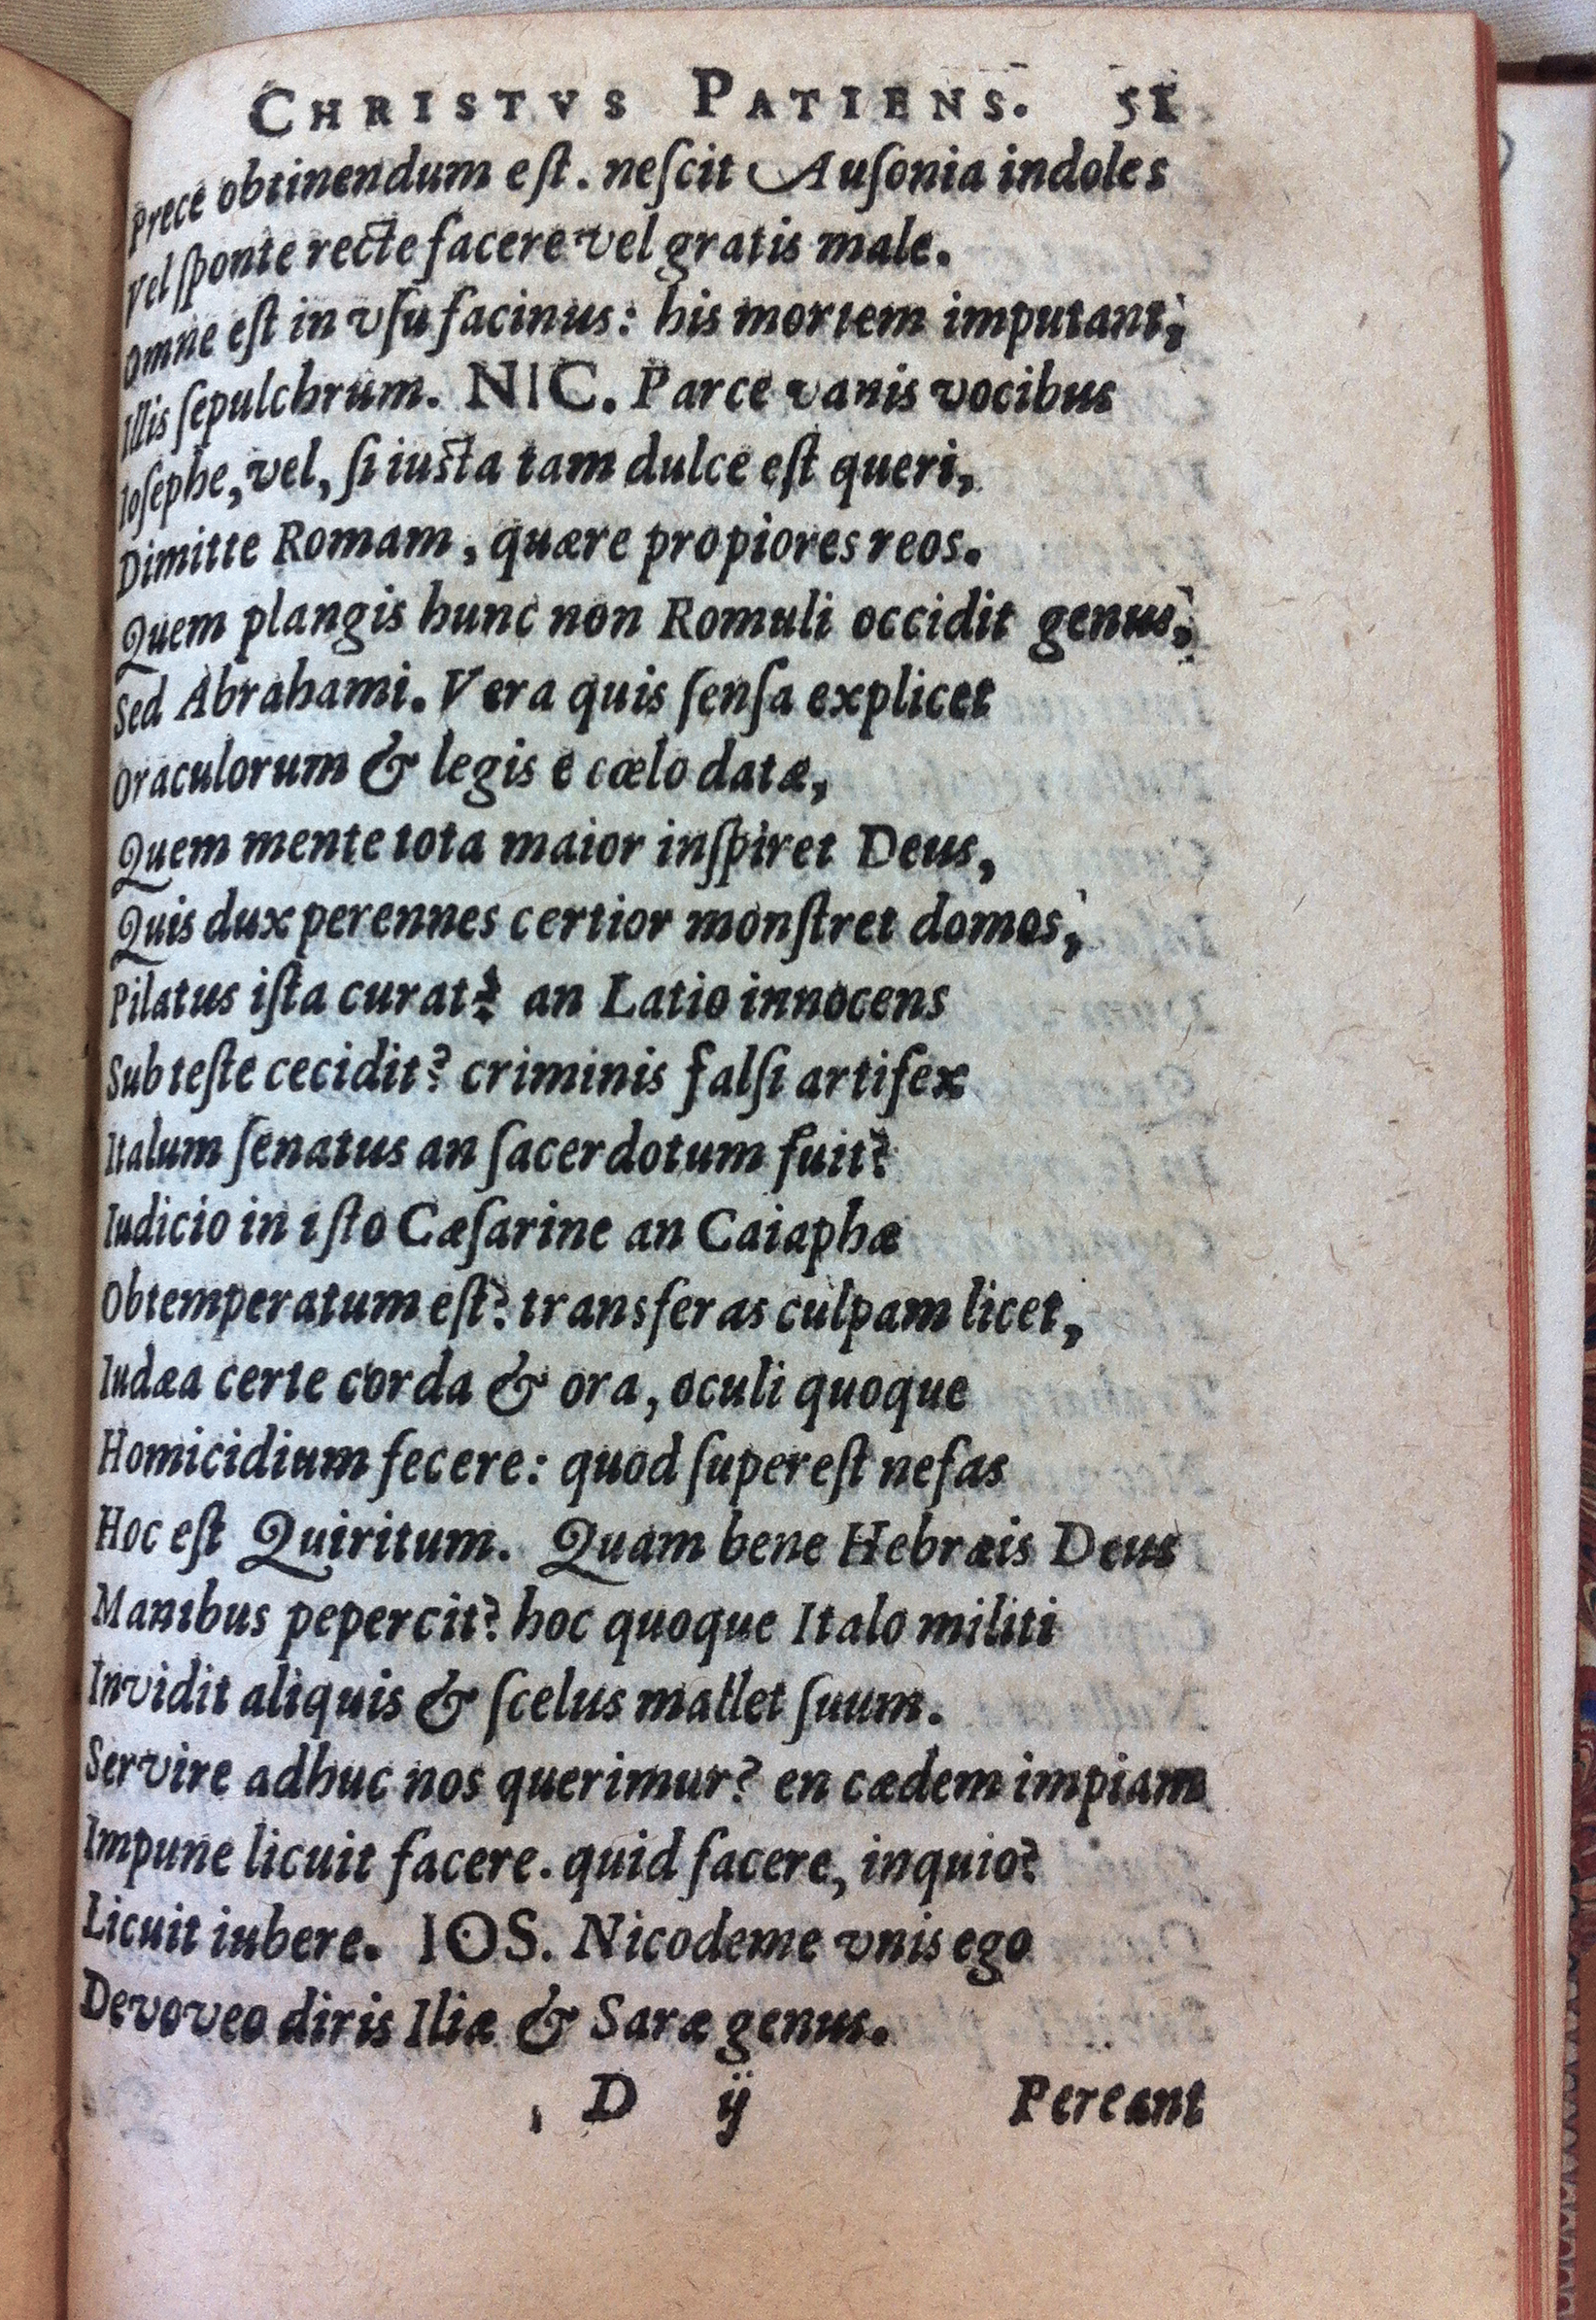 CHRISTVS PATIENS. 51
Prece obtinendum eſt. neſcit Auſonia indoles
Vel ſponte recte facere vel gratis male.
Omne eſt in vſu facinus: his mortem imputant,
Illis ſepulchrum. NIC. Parce vanis vocibus
Ioſephe, vel, ſi iusta tam dulce eſt queri,
Dimitte Romam, quære propiores reos.
Quem plangis hunc non Romuli occidit genus,
Sed Abrahami. Vera quis ſenſa explicet
Oraculorum & legis e cœlo datæ,
Quem mente tota maior inſpiret Deus,
Quis dux perennes certior monſtret domos,
Pilatus iſta curat? an Latio innocens
Sub teſte cecidit? criminis falſi artifex
Italum ſenatus an ſacerdotum fuit?
Iudicio in iſto Cæſarine an Caiaphæ
Obtemperatum eſt? transferas culpam licet,
Iudæa certe corda & ora, oculi quoque
Homicidium fecere: quod ſupereſt nefas
Hoc eſt Quiritum. Quam bene Hebræis Deus
Manibus pepercit? hoc quoque Italo militi
Invidit aliquis & ſcelus mallet ſuum.
Servire adhuc nos querimur? en cædem impiam
Impune licuit facere. quid facere, inquio?
Licuit iubere. IOS. Nicodeme vnis ego
Devoveo diris Iliæ & Saræ genus.
D ij Pereant